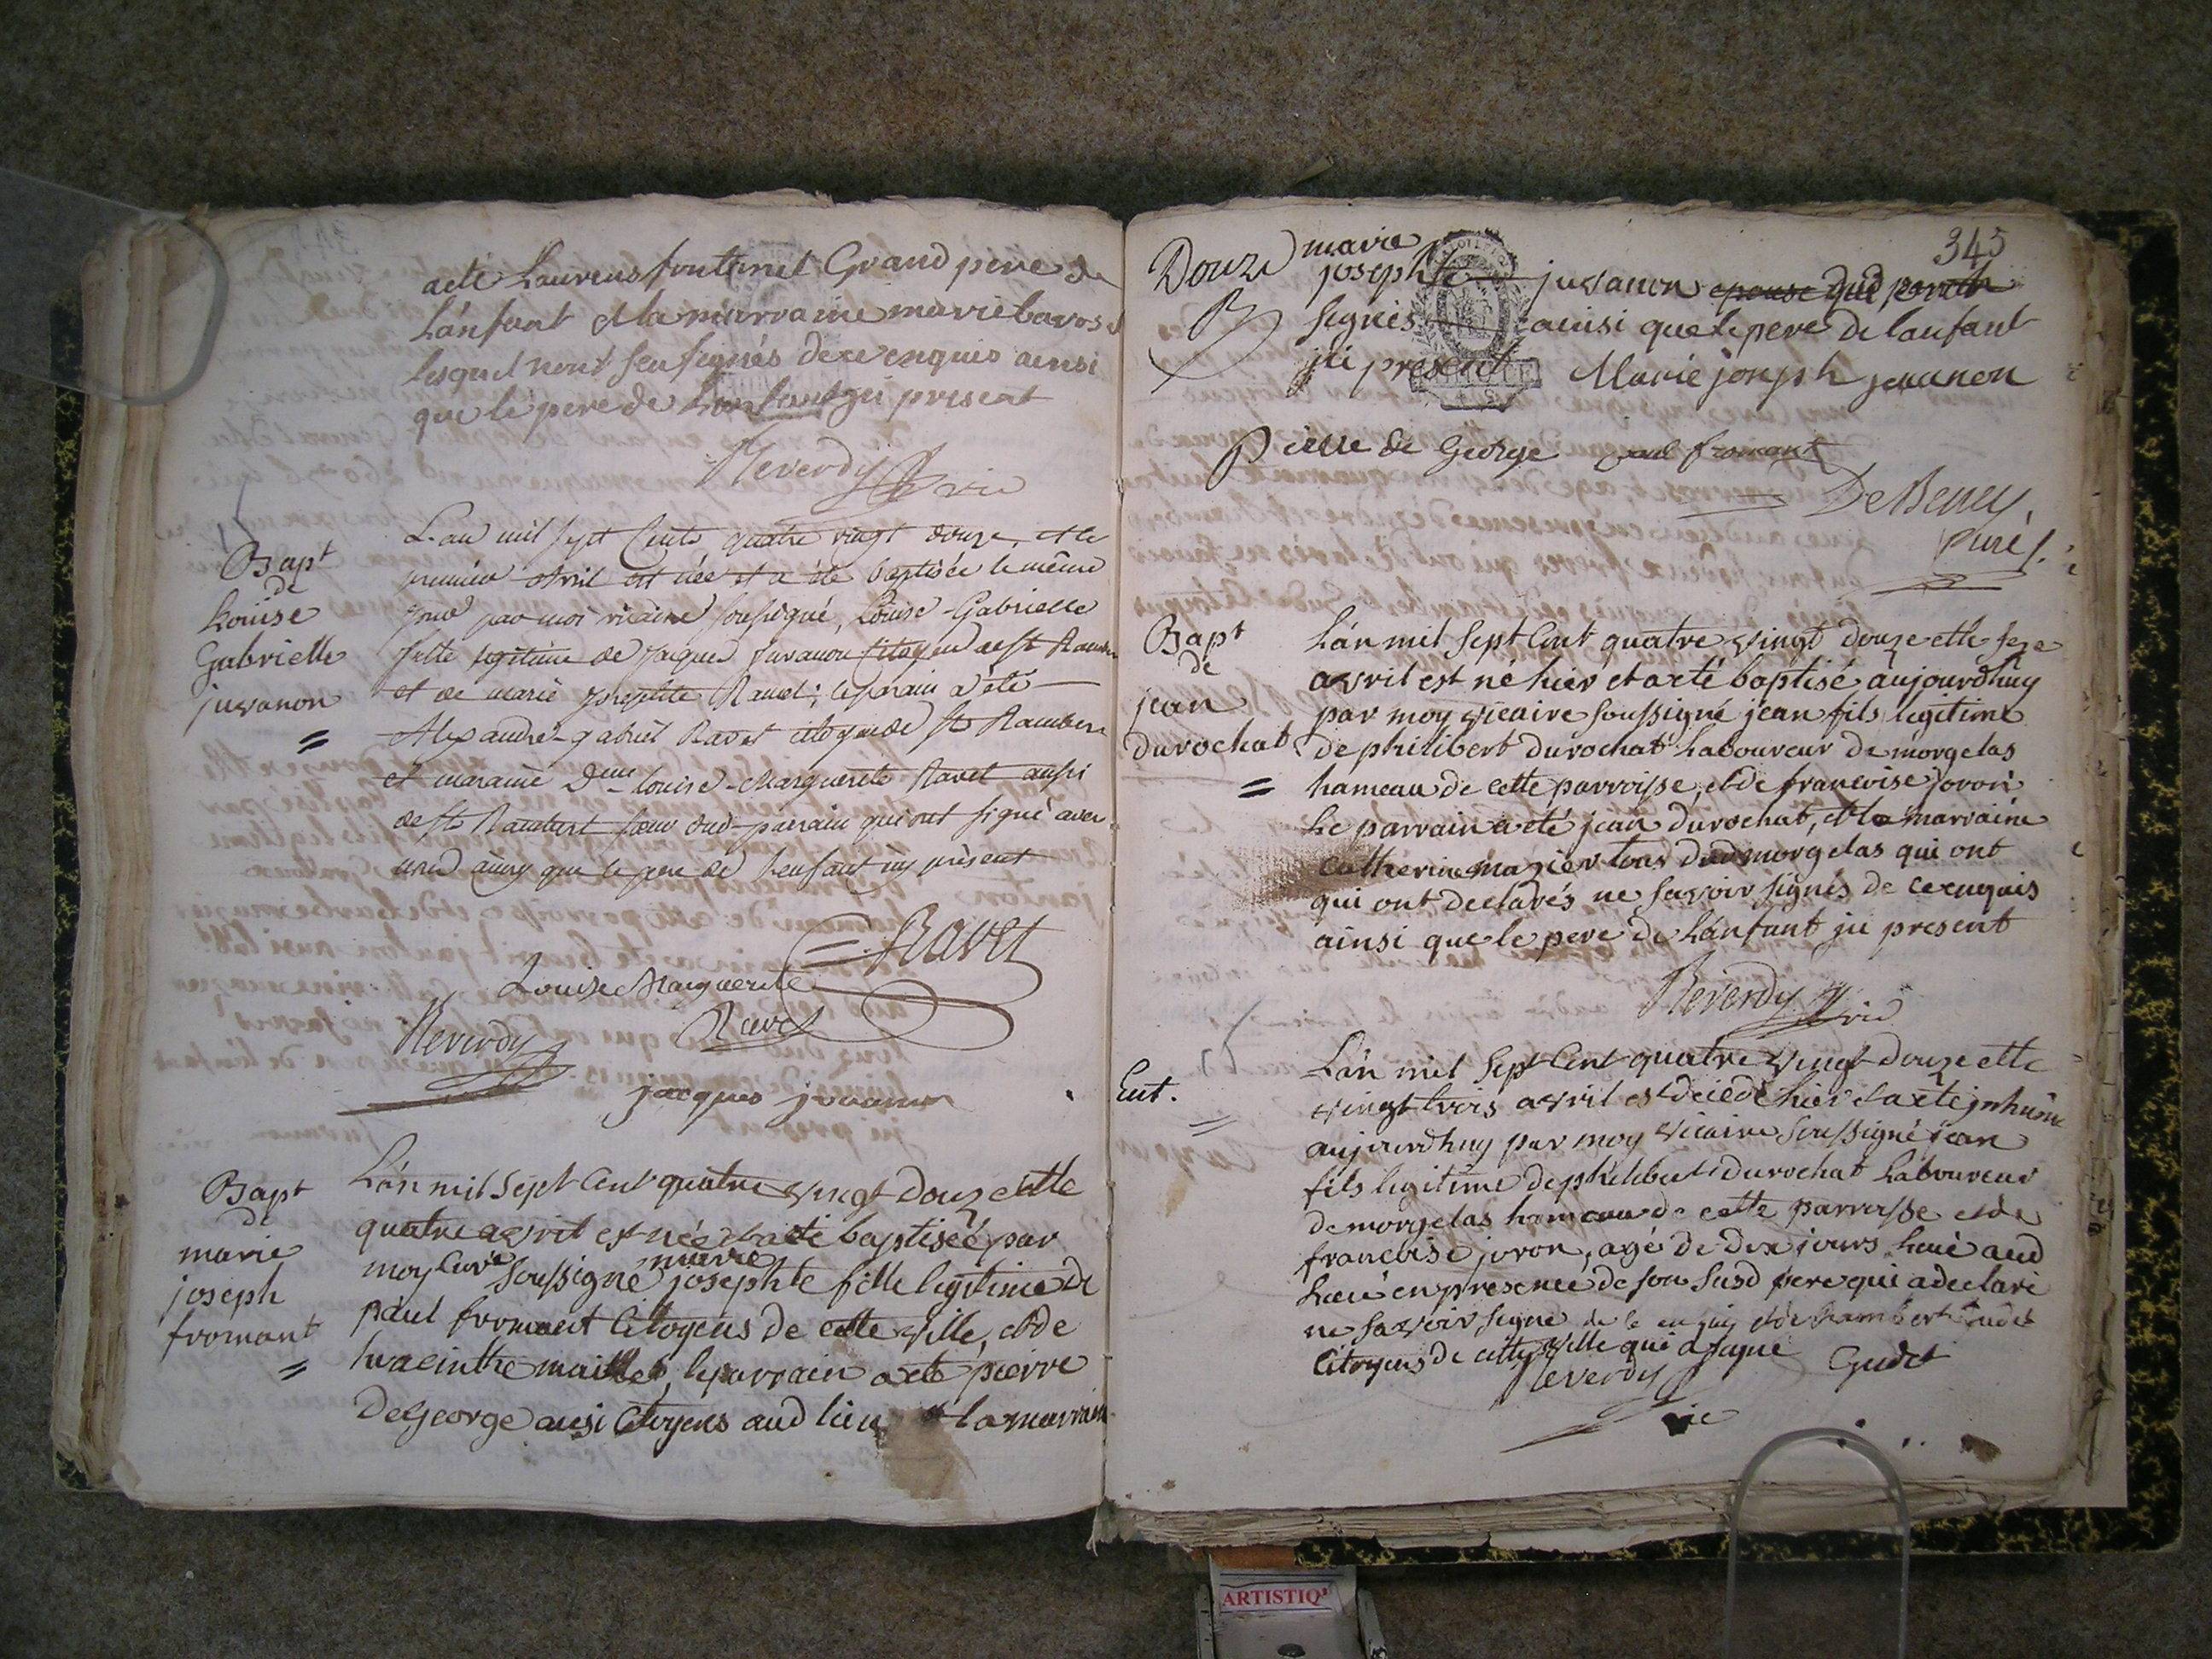 acte Laurens fontanel Grand pere de
Lánfant et la marraine marie
lesquel nont seu signés de ce enquis ainsi
que le pere de Lanfant jci present
Reverdy vic
Bapt
de
Louise
Gabrielle
juvanon
L'an mil sept cents quatre vingt douze, et le
premier avril est née et a été baptisée le même
jour par moi vicaire soussigné, Louise-Gabrielle
fille légitime de Jaques Juvanon citoyen de st Rambert
et de marie josephte Ravet; le parain a été
Alexandre-gabriel Ravet citoyen de St Rambert
et maraine Dlle louise-Marguerite Ravet aussi
de St Rambert sœur dud parrain qui ont signé avec
nous ainsy que le pere de l'enfant icy présent
Ravet
Louise Marguerite
Ravet
Reverdy
jacques jvuanon
Bapt
de
marie
joseph
fromant
Lán mil sept Cent quatre vingt Douze et le
quatre avril est née et a eté baptiseé par
moy Curé soussigné marie josephte fille legitime de
paul fromant Citoyens de cette ville, et de
hyacinthe maillet, le parrain a eté pierre
DeGeorge ausi Citoyens aud lieu et la marraine
345
Douze
marie
josephte juvanon epouse dud parain
signés ainsi que le pere de lanfant
jci present Marie joseph jvuanon
Pierre de George paul fromant
DeBeney
Curé
Bapt
de
jean
durochat
Lán mil sept Cent quatre vingt douze et le seze
avril est né hier et a eté baptisé aujourdhuy
par moy vicaire soussigné jean fils legitime
de philibert durochat Laboureur de morgelas
hameau de cette parroisse, et de francoise joron
Le parrain a eté jean durochat, et la marraine
Catherine magier tous dud morgelas qui ont
qui ont declarés ne savoir signés de ce enquis
ainsi que le pere de Lánfant jci present
Reverdy vic
Ent.
Lán mil sept Cent quatre vingt douze et le
vingt trois avril est décédé hier et a eté jnhumé
aujourdhuy par moy vicaire soussigné jean
fils legitime de philibert durochat Laboureur
de morgelas hameau de cette parroisse et de
francoise joron, agé de dix jours aud
Lieu en presence de son susd pere qui a declaré
ne savoir signe de ce enquis et de Rambert Gudet
Citoyens de cette ville qui a signé
Gudet
Reverdy
vic
ARTISTIQ'